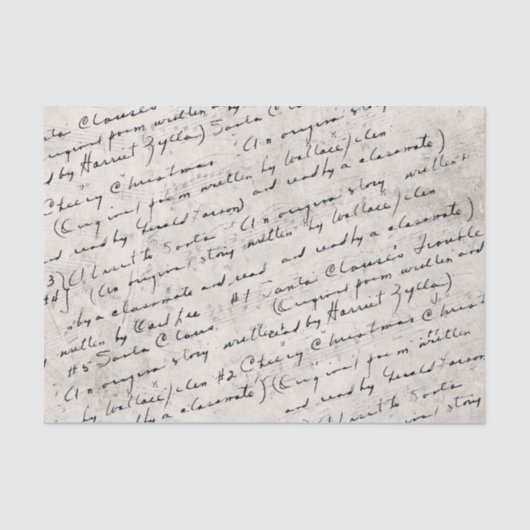 Santa Clause's
original poem written
read by Harriet Zylla) Santa C
Cheery Christmas (An original story
(Original poem written by Wallace
and read by Gerald Larson) and read by a classmate)
3) (I went to Santa (An original story written
#4} (An original story written by Wallace
by a classmate and read and read by a classmate)
written by Carl #1 Santa Clause's Trouble
#5 Santa Claus. (Original poem written and
(An original story written read by Harriet Zylla)
by Wallace #2 Cheery Christmas Christ
by a classmate} (Original poem written
and read by Gerald Larson
I went to Santa
story